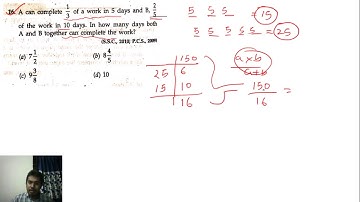 16. A can complete 1/3 of a work in 5 days and B, 2/5
of the work in 10 days. In how many days both
A and B together can complete the work?
(S.S.C., 2010; P.C.S., 2009)
(a) 7 1/2 (b) 8 4/5
(c) 9 3/8 (d) 10
5 5 5 = 15
5 5 5 5 5 = 25
150
25 6
15 10
16
a×b
a+b
150
16 =